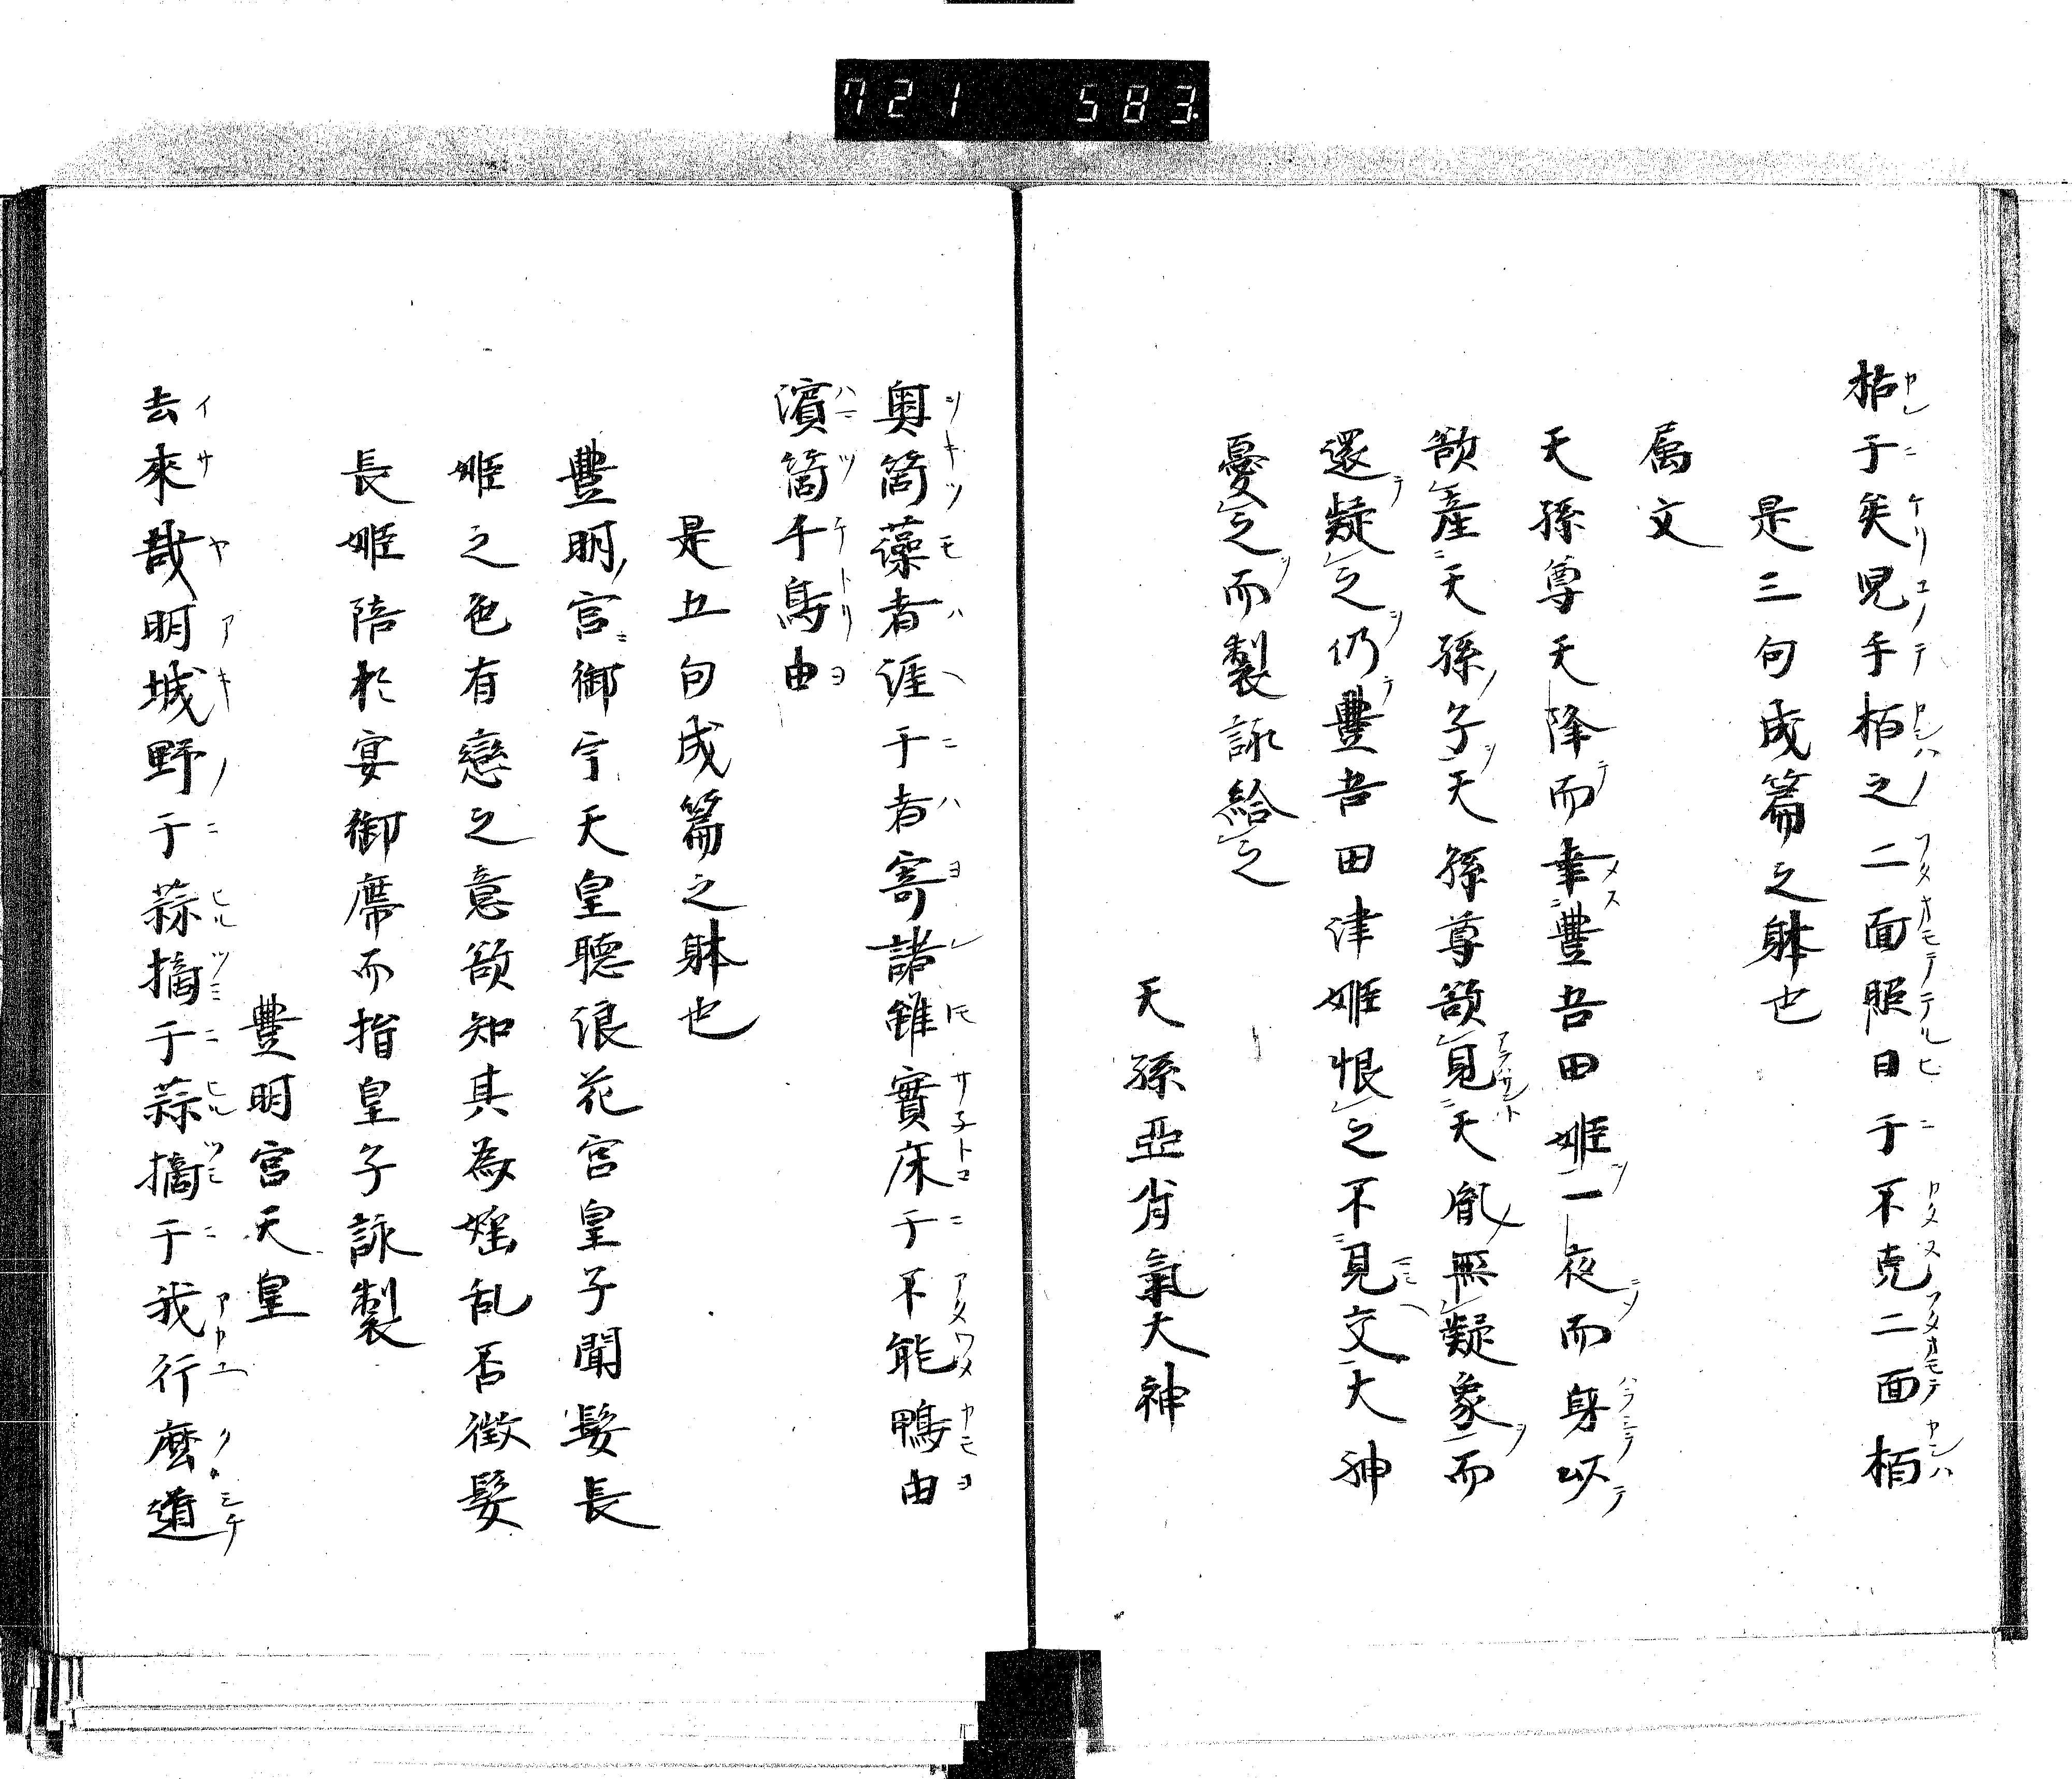 721 583
枯于矣兒手栢之二面照日于不克二面栢
是三句成篇之躰也
属文
天孫尊天降而幸豊吾田姫一夜而身以
欲産天孫子天孫尊欲見天胤無疑象而
還疑之仍豊吾田津姫恨之不見交大神
憂之而製詠給之
天孫亞肖氣大神
奥箇藻者涯于者寄諸雖實床于不能鴨由
濱箇千鳥由
是五句成篇之躰也
豊明宮御宇天皇聴浪花宮皇子聞髪長
姫之色有戀之意欲知其為婬乱否徴髪
長姫陪於宴御席而指皇子詠製
豊明宮天皇
去來哉明城野于蒜摘于蒜摘于我行麼道